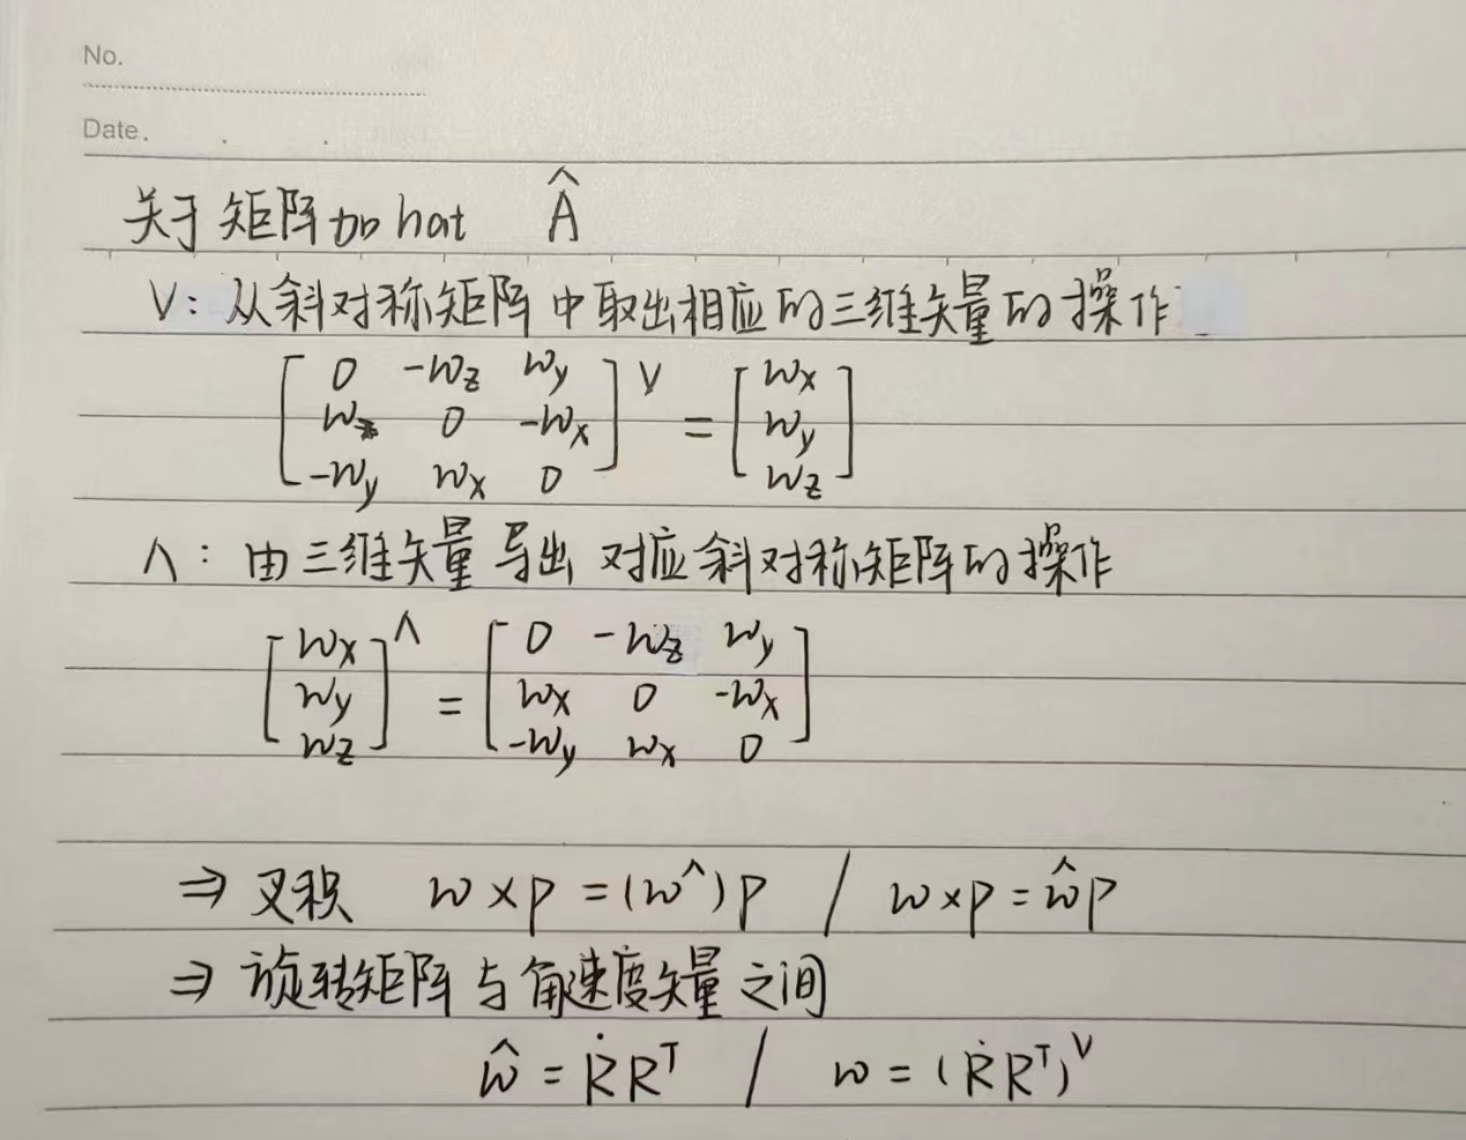 No.
Date.
关于矩阵加hat Â
∨: 从斜对称矩阵中取出相应的三维矢量的操作
[0 -wz wy; wz 0 -wx; -wy wx 0]^∨ = [wx; wy; wz]
∧: 由三维矢量导出对应斜对称矩阵的操作
[wx; wy; wz]^∧ = [0 -wz wy; wx 0 -wx; -wy wx 0]
⇒ 叉积 w×p = (w^)p / w×p = ŵp
⇒ 旋转矩阵与角速度矢量之间
ŵ = ṘRᵀ / w = (ṘRᵀ)^∨